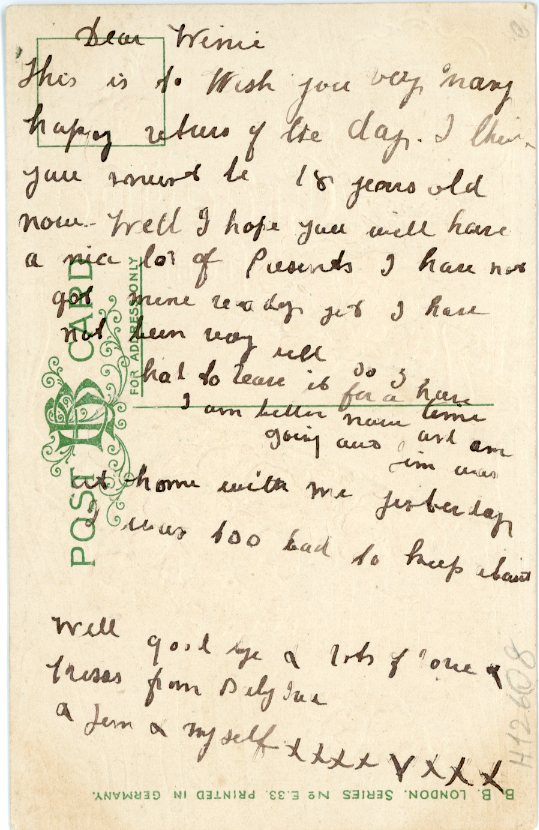 Dear Winie
This is to Wish you very many
happy returs of the day. I think
you must be 18 years old
now. Well I hope you will have
a nice lot of Presents I have not
got mine ready yet I have
not been very well
so I have
had to leave it for a time
I am better now and am
going out
Jim was
at home with me yesterday
I was too bad to keep about
Well good bye & lots of love &
kisses from
& Jem & myself xxxx xxxx
POST CARD
FOR ADDRESS ONLY
BB
B. B. LONDON. SERIES No E.33. PRINTED IN GERMANY.
H12608